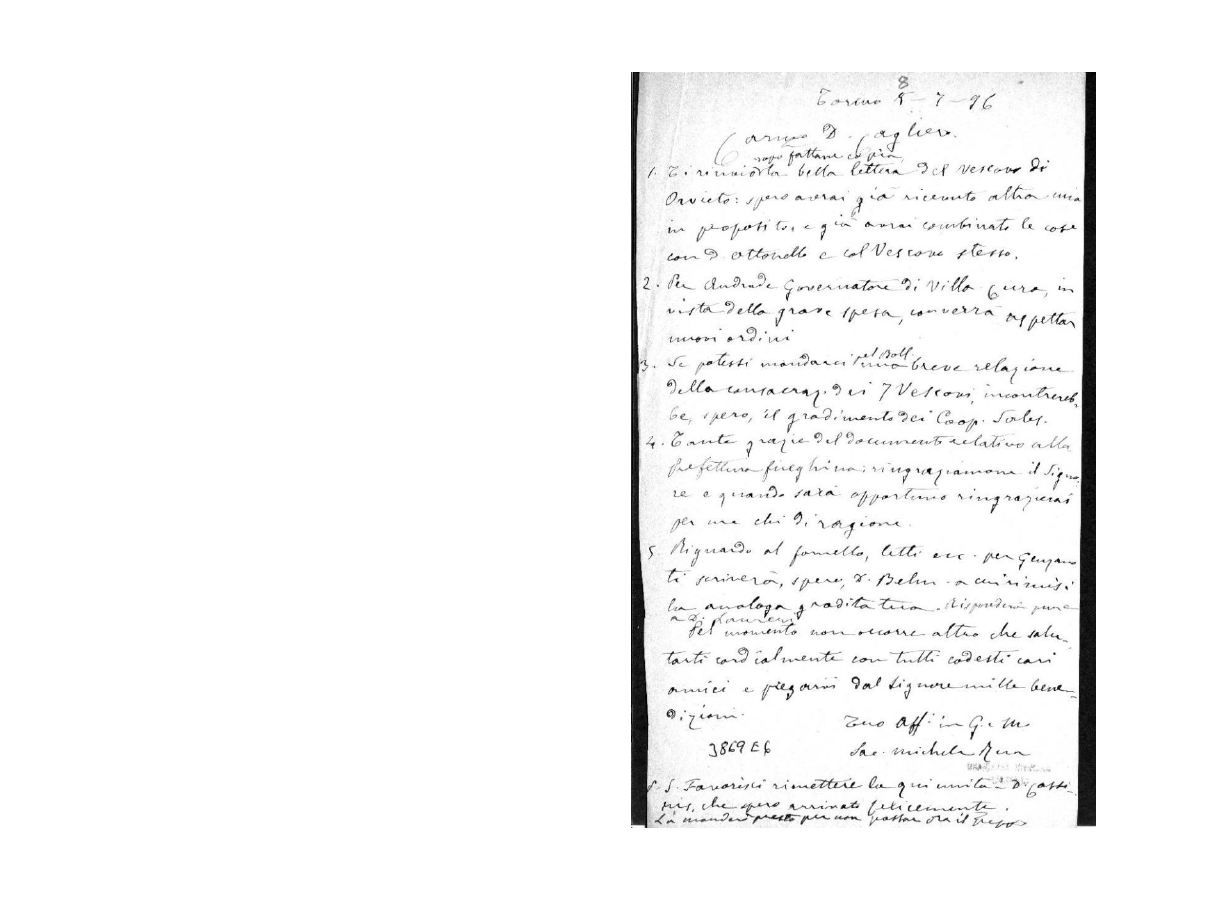 8
Torino 5-7-96
Carmo D. Cagliero.
dopo fattane copia
1. Ti rinvio la bella lettera del Vescovo di
Orvieto: spero avrai già ricevuto altra mia
in proposito, e già avrai combinato le cose
con D. Ottonello e col Vescovo stesso.
2. Per Andrade Governatore di Villa Cura, in
vista della grave spesa, converrà aspettar
nuovi ordini
pel Boll.
3. Se potessi mandarci una breve relazione
della consacraz. dei 7 Vescovi, incontrereb-
be, spero, il gradimento dei Coop. Sales.
4. Tante grazie del documento relativo alla
Prefettura fueghina: ringraziamone il Signo-
re e quando sarà opportuno ringrazierai
per me chi di ragione.
5. Riguardo al fornello, letti ecc. per Genzano
ti scriverà, spero, D. Belm. a cui rimisi
la analoga gradita tua. Risponderà pure
a D. Laureri
Pel momento non occorre altro che salu-
tarti cordialmente con tutti codesti cari
amici e pregarvi dal Signore mille bene-
dizioni.
Tuo Aff. in G. e M.
3869 E6
Sac. Michele Rua
P. S. Favorisci rimettere la qui unita a D. Cassi-
nis, che spero arrivato felicemente.
La manderò presto per non passar ora il